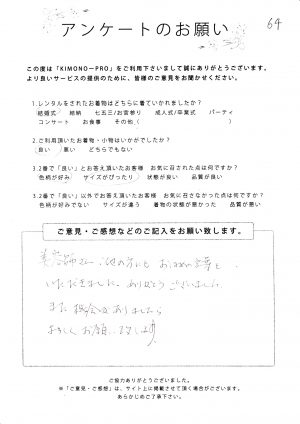 アンケートのお願い
64
この度は「KIMONO-PRO」をご利用下さいまして誠にありがとうございます。
より良いサービスの提供のために、皆様のご意見をお聞かせください。
1.レンタルをされたお着物はどちらに着ていかれましたか?
結婚式 結納 七五三/お宮参り 成人式/卒業式 パーティ
コンサート お食事 その他( )
2.ご利用頂いたお着物・小物はいかがでしたか?
良い 悪い どちらでもない
3.2番で「良い」とお答え頂いたお客様 お気に召された点は何ですか?
色柄が好み サイズがぴったり 状態が良い 品質が良い
3.2番で「良い」以外でお答え頂いたお客様 お気に召さなかった点は何ですか?
色柄が好みでない サイズが違う 着物の状態が悪かった 品質が悪い
ご意見・ご感想などのご記入をお願い致します。
美容師さん、他の方にも お
いただきました。ありがとうございました。
また 機会がありましたら
よろしく お願い致します
ご協力ありがとうございました。
※「ご意見・ご感想」は、サイト上に掲載させて頂く場合がございます。
あらかじめご了承下さい。